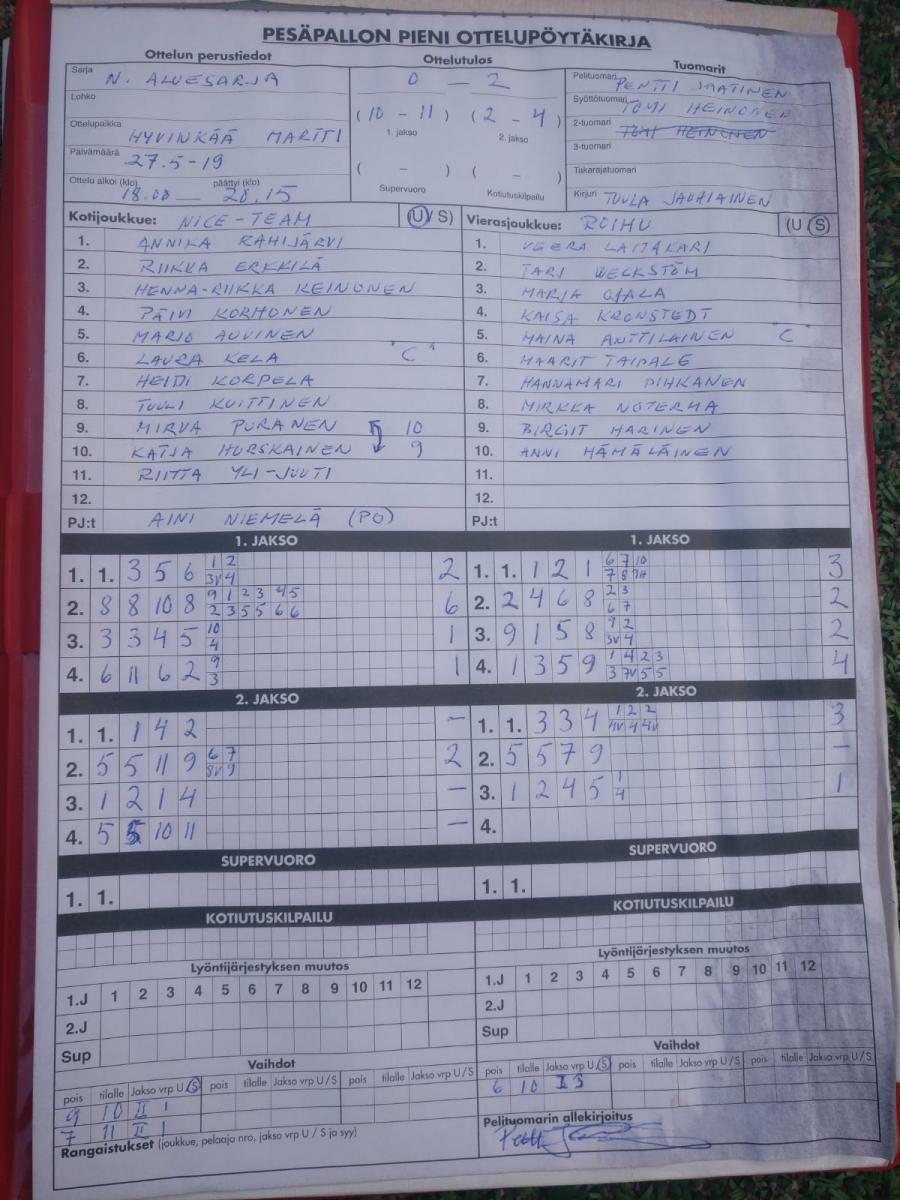 PESÄPALLON PIENI OTTELUPÖYTÄKIRJA
Ottelun perustiedot Ottelutulos Tuomarit
Sarja N. ALUESARJA 0 — 2 Pelituomari PENTTI JAATINEN
Lohko (10 - 11) (2 - 4) Syöttötuomari TOMI HEINONEN
Ottelupaikka HYVINKÄÄ MARTTI 1. jakso 2. jakso 2-tuomari TOMI HEINONEN
Päivämäärä 27.5-19 ( - ) ( - ) 3-tuomari
Takarajatuomari
Ottelu alkoi (klo) 18.00 — päättyi (klo) 20.15 Supervuoro Kotiutuskilpailu Kirjuri TUULA JAUHIAINEN
Kotijoukkue: NICE-TEAM (U/S) Vierasjoukkue: ROIHU (U/S)
1. ANNIKA RAHIJÄRVI 1. VEERA LAITAKARI
2. RIIKKA ERKKILÄ 2. TARI WECKSTÖM
3. HENNA-RIIKKA KEINONEN 3. MARJA OJALA
4. PÄIVI KORHONEN 4. KAISA KRONSTEDT
5. MARJO AUVINEN 5. MAINA ANTTILAINEN "C"
6. LAURA KELA "C" 6. MAARIT TAIPALE
7. HEIDI KORPELA 7. HANNAMARI PIHKANEN
8. TUULI KUITTINEN 8. MIRKKA NOTERMA
9. MIRVA PURANEN 10 9. BIRGIT HARINEN
10. KATJA HURSKAINEN 9 10. ANNI HÄMÄLÄINEN
11. RIITTA YLI-JUUTI 11.
12. 12.
PJ:t AINI NIEMELÄ (PO) PJ:t
1. JAKSO 1. JAKSO
1. 1. 3 5 6 1 2 2 1. 1. 1 2 1 6 7 10 3
3V 4 7 8
2. 8 8 10 8 9 1 2 3 4 5 6 2. 2 4 6 8 2 3 2
2 3 5 5 6 6 6 7
3. 3 3 4 5 10 1 3. 9 1 5 8 9 2 2
4 3V 4
4. 6 11 6 2 9 1 4. 1 3 5 9 1 4 2 3 4
3 3 7V 5 5
2. JAKSO 2. JAKSO
1. 1. 1 4 2 — 1. 1. 3 3 4 1 2 2 3
4V 4 4V
2. 5 5 11 9 6 7 2 2. 5 5 7 9 —
8V 9
3. 1 2 1 4 — 3. 1 2 4 5 1 1
4
4. 5 5 10 11 — 4.
SUPERVUORO SUPERVUORO
1. 1. 1. 1.
KOTIUTUSKILPAILU KOTIUTUSKILPAILU
Lyöntijärjestyksen muutos Lyöntijärjestyksen muutos
1.J 1 2 3 4 5 6 7 8 9 10 11 12 1.J 1 2 3 4 5 6 7 8 9 10 11 12
2.J 2.J
Sup Sup
Vaihdot Vaihdot
pois tilalle Jakso vrp U/S pois tilalle Jakso vrp U/S pois tilalle Jakso vrp U/S pois tilalle Jakso vrp U/S pois tilalle Jakso vrp U/S pois tilalle Jakso vrp U/S
9 10 II 1 6 10 3
7 11 II 1
Rangaistukset (joukkue, pelaaja nro, jakso vrp U / S ja syy) Pelituomarin allekirjoitus